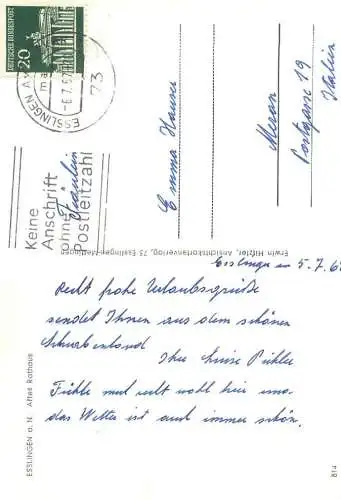 Esslingen 5.7.67
Recht frohe Urlaubsgrüße
sendet Ihnen aus dem schönen
Schwabenland
Ihre Luise Pichler
Fühle mich recht wohl hier und
das Wetter ist auch immer schön.
ESSLINGEN a. N. Altes Rathaus
814
Erwin Hilzler, Ansichtskartenverlag, 73 Esslingen-Mettingen
DEUTSCHE BUNDESPOST
20
ESSLINGEN A
-6.7.67
73
Keine
Anschrift
ohne
Postleitzahl
Fräulein
Emma Hauser
Meran
Postgasse 19
Italien